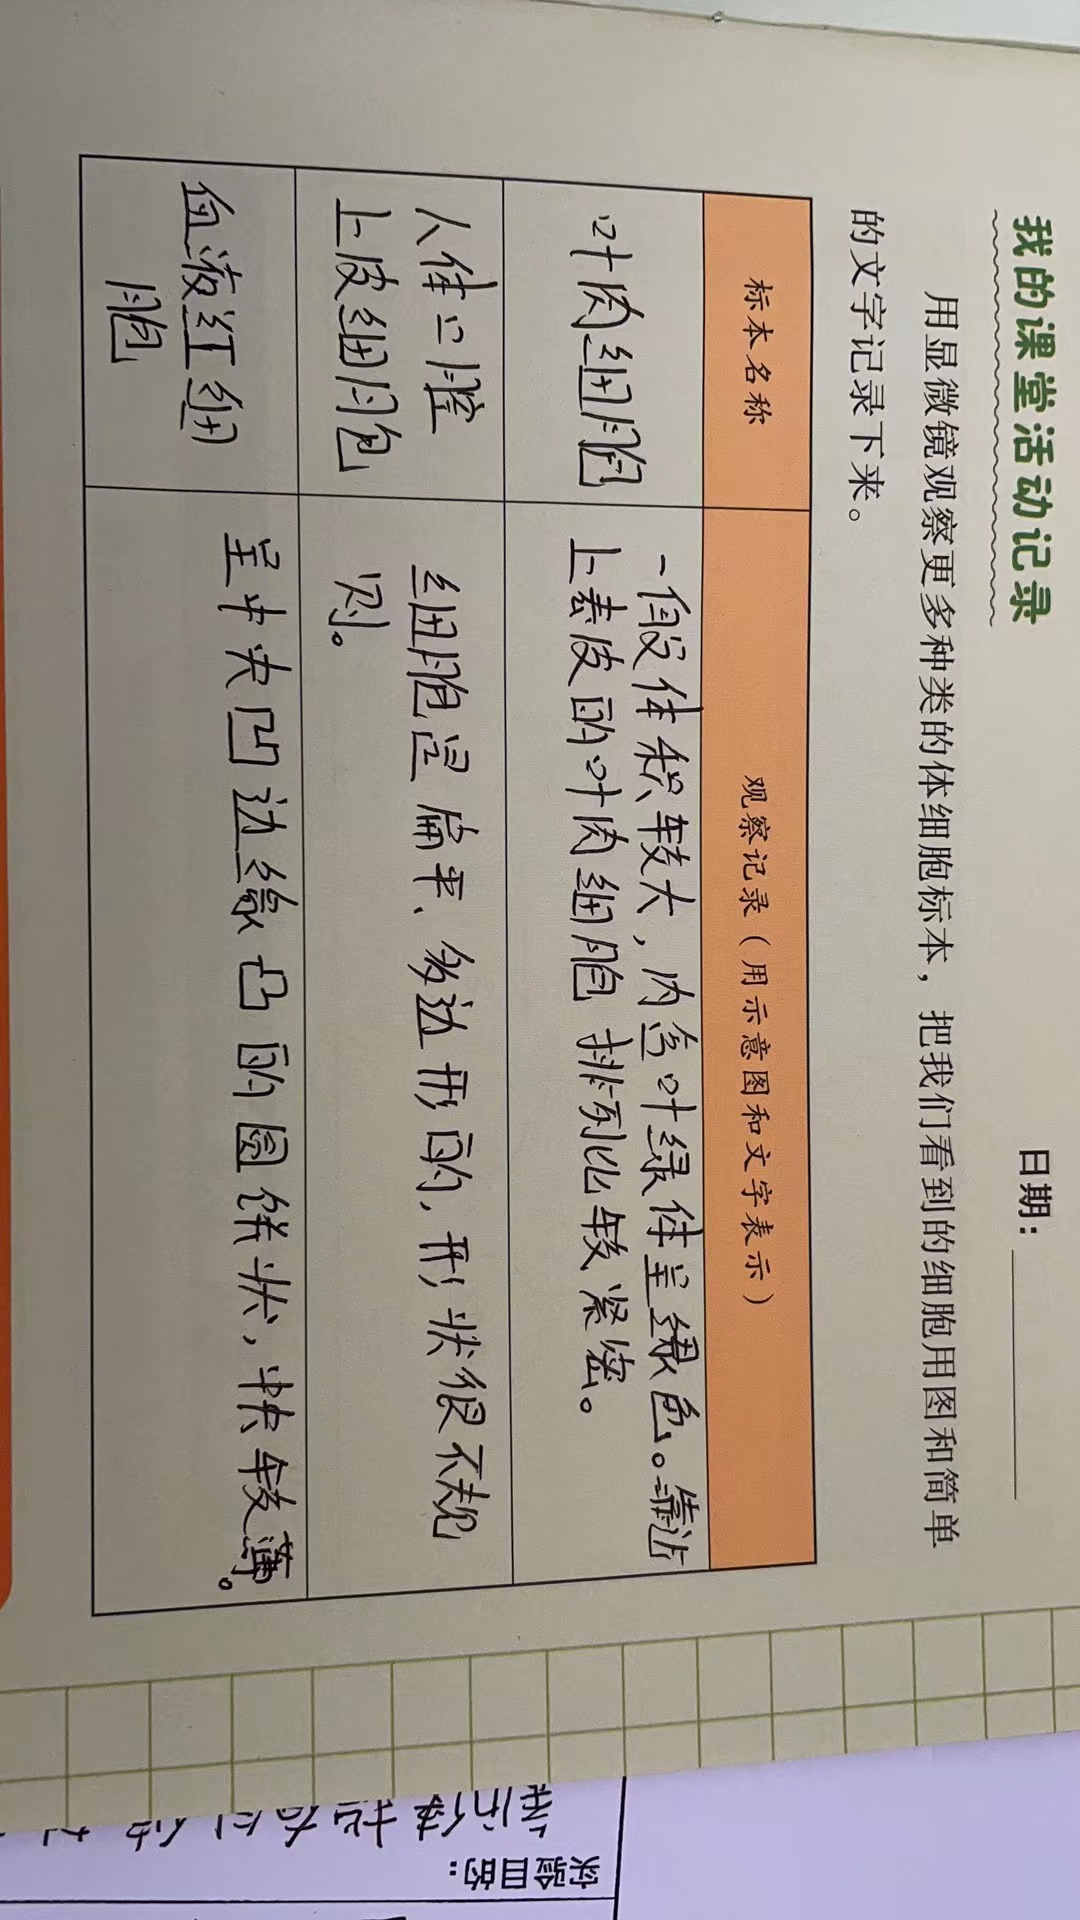 我的课堂活动记录
日期：
用显微镜观察更多种类的体细胞标本，把我们看到的细胞用图和简单
的文字记录下来。
标本名称
观察记录（用示意图和文字表示）
叶肉细胞
一般体积较大，内含叶绿体呈绿色。靠近
上表皮的叶肉细胞排列比较紧密。
人体口腔
上皮细胞
细胞呈扁平、多边形的，形状很不规
则。
血液红细
胞
呈中央凹边缘凸的圆饼状，中央较薄。
实验目的：